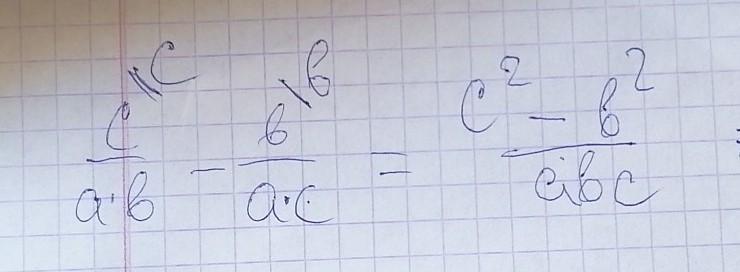 c\c / a·b − b\b / a·c = c² − b² / abc =